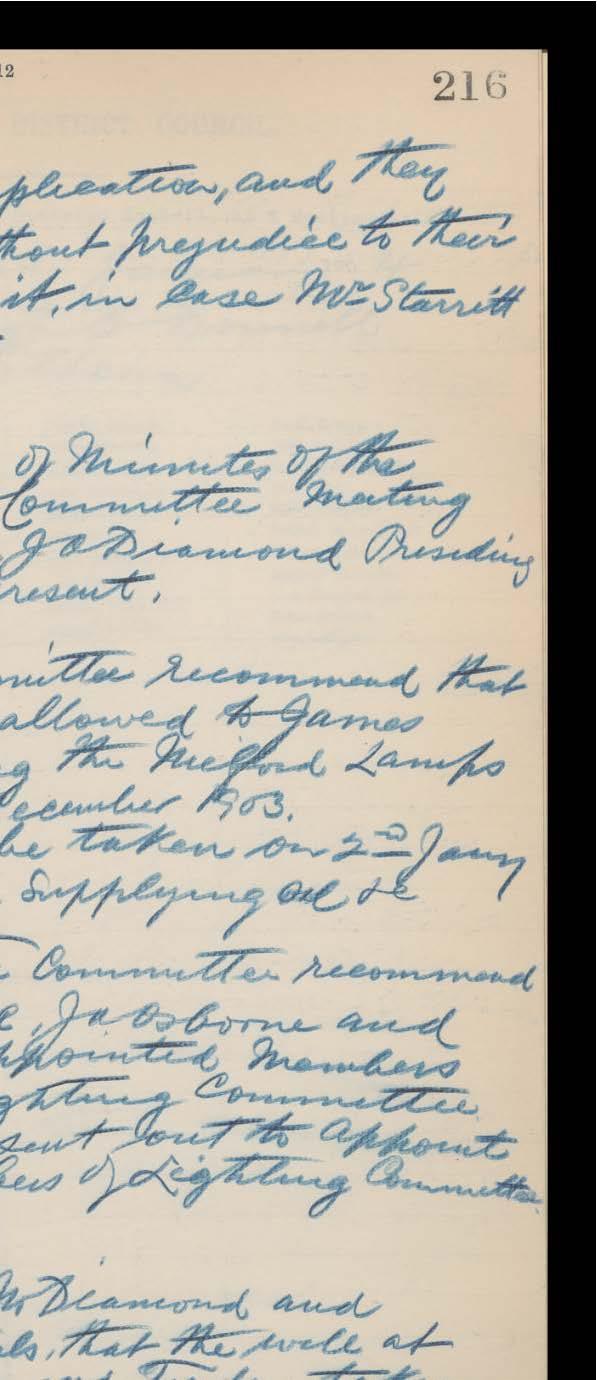 12
216
plication, and they
thout prejudice to their
it, in case Mr Starritt
of Minutes of the
Committee Meeting
J A Diamond Presiding
resent.
mittee recommend that
allowed to James
g the Milford Lamps
ecember 1903.
be taken on 2nd Jany
Supplying oil &c
Committee recommend
Jn Osborne and
ppointed Members
ghting Committee
sent out to appoint
bers of Lighting Committee
Mr Diamond and
els, that the well at
and